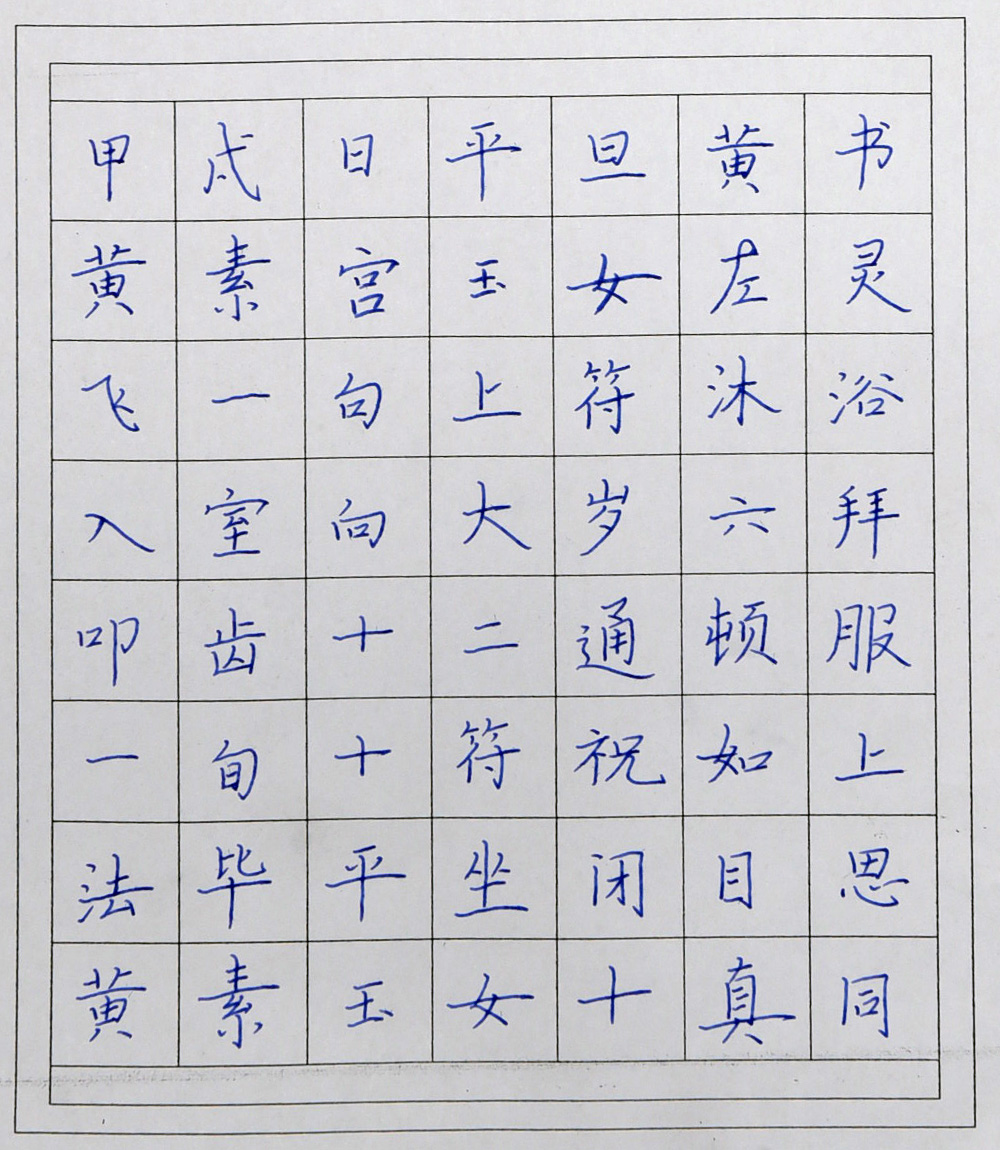 甲戌日平旦黄书
黄素宫玉女左灵
飞一旬上符沐浴
入室向太岁六拜
叩齿十二通顿服
一旬十符祝如上
法毕平坐闭目思
黄素玉女十真同